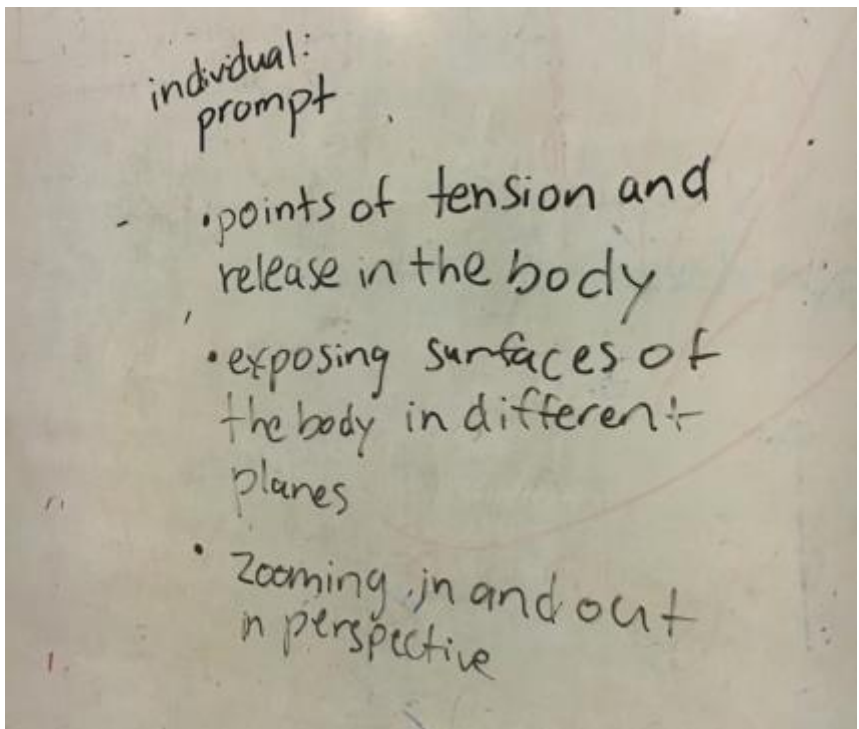 individual:
prompt
•points of tension and
release in the body
•exposing surfaces of
the body in different
planes
• zooming in and out
in perspective